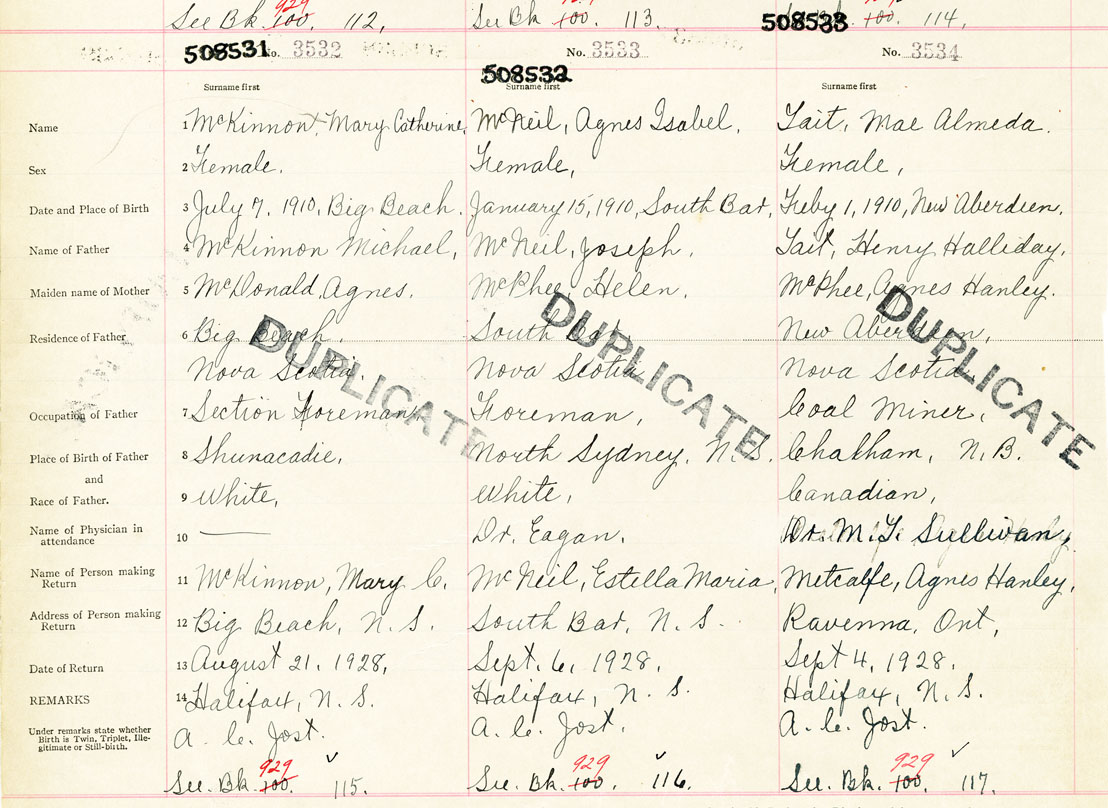 See Bk 100. 929 112, See Bk 100. 113. 100. 114,
508531 No. 3532 508532 No. 3533 508533 No. 3534
Surname first Surname first Surname first
Name 1 McKinnon, Mary Catherine, McNeil, Agnes Isabel, Tait, Mae Almeda.
Sex 2 Female. Female, Female,
Date and Place of Birth 3 July 7, 1910, Big Beach. January 15, 1910, South Bar, Feby 1, 1910, New Aberdeen,
Name of Father 4 McKinnon Michael, McNeil, Joseph, Tait, Henry Halliday,
Maiden name of Mother 5 McDonald, Agnes. McPhee, Helen, McPhee, Agnes Hanley.
Residence of Father 6 Big Beach, South Bar New Aberdeen,
Nova Scotia. Nova Scotia Nova Scotia
DUPLICATE DUPLICATE DUPLICATE
Occupation of Father 7 Section Foreman Foreman, Coal Miner,
Place of Birth of Father 8 Shunacadie, North Sydney, N.S. Chatham, N.B.
and
Race of Father. 9 White, White, Canadian,
Name of Physician in
attendance 10 — Dr. Eagan. Dr. M.T. Sullivan,
Name of Person making
Return 11 McKinnon, Mary C. McNeil, Estella Maria, Metcalfe, Agnes Hanley,
Address of Person making
Return 12 Big Beach, N.S. South Bar, N.S. Ravenna, Ont,
Date of Return 13 August 21, 1928, Sept. 6, 1928, Sept 4, 1928,
REMARKS 14 Halifax, N.S. Halifax, N.S. Halifax, N.S.
Under remarks state whether
Birth is Twin, Triplet, Ille-
gitimate or Still-birth.
A. C. Jost. A. C. Jost. A. C. Jost.
See. Bk. 100. 929 ✓ 115. See. Bk. 100. 929 ✓ 116. See. Bk. 100. 929 ✓ 117.